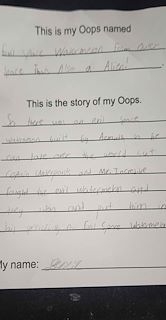 This is my Oops named
Evil Space Watermelon From Over
Space Thats Also a Alien!
This is the story of my Oops.
So there was an evil space
watermelon built by Aeguals so he
can take over the world but
Captain Underpants and Mr. Incredible
fought the evil watermelon and
they won and put him in
by
Evil Space Watermelon
My name: Benny